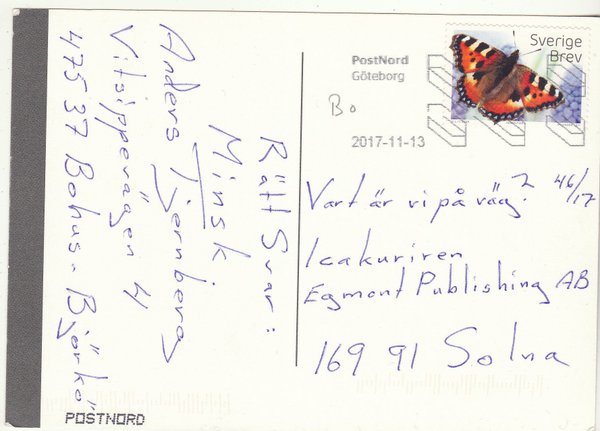 Rätt Svar:
Minsk
Anders Tjernberg
Vitsippevägen 4
475 37 Bohus-Björkö
PostNord
Göteborg
2017-11-13
Sverige
Brev
Bo
Vart är vi på väg? 46/17
Icakuriren
Egmont Publishing AB
169 91 Solna
POSTNORD